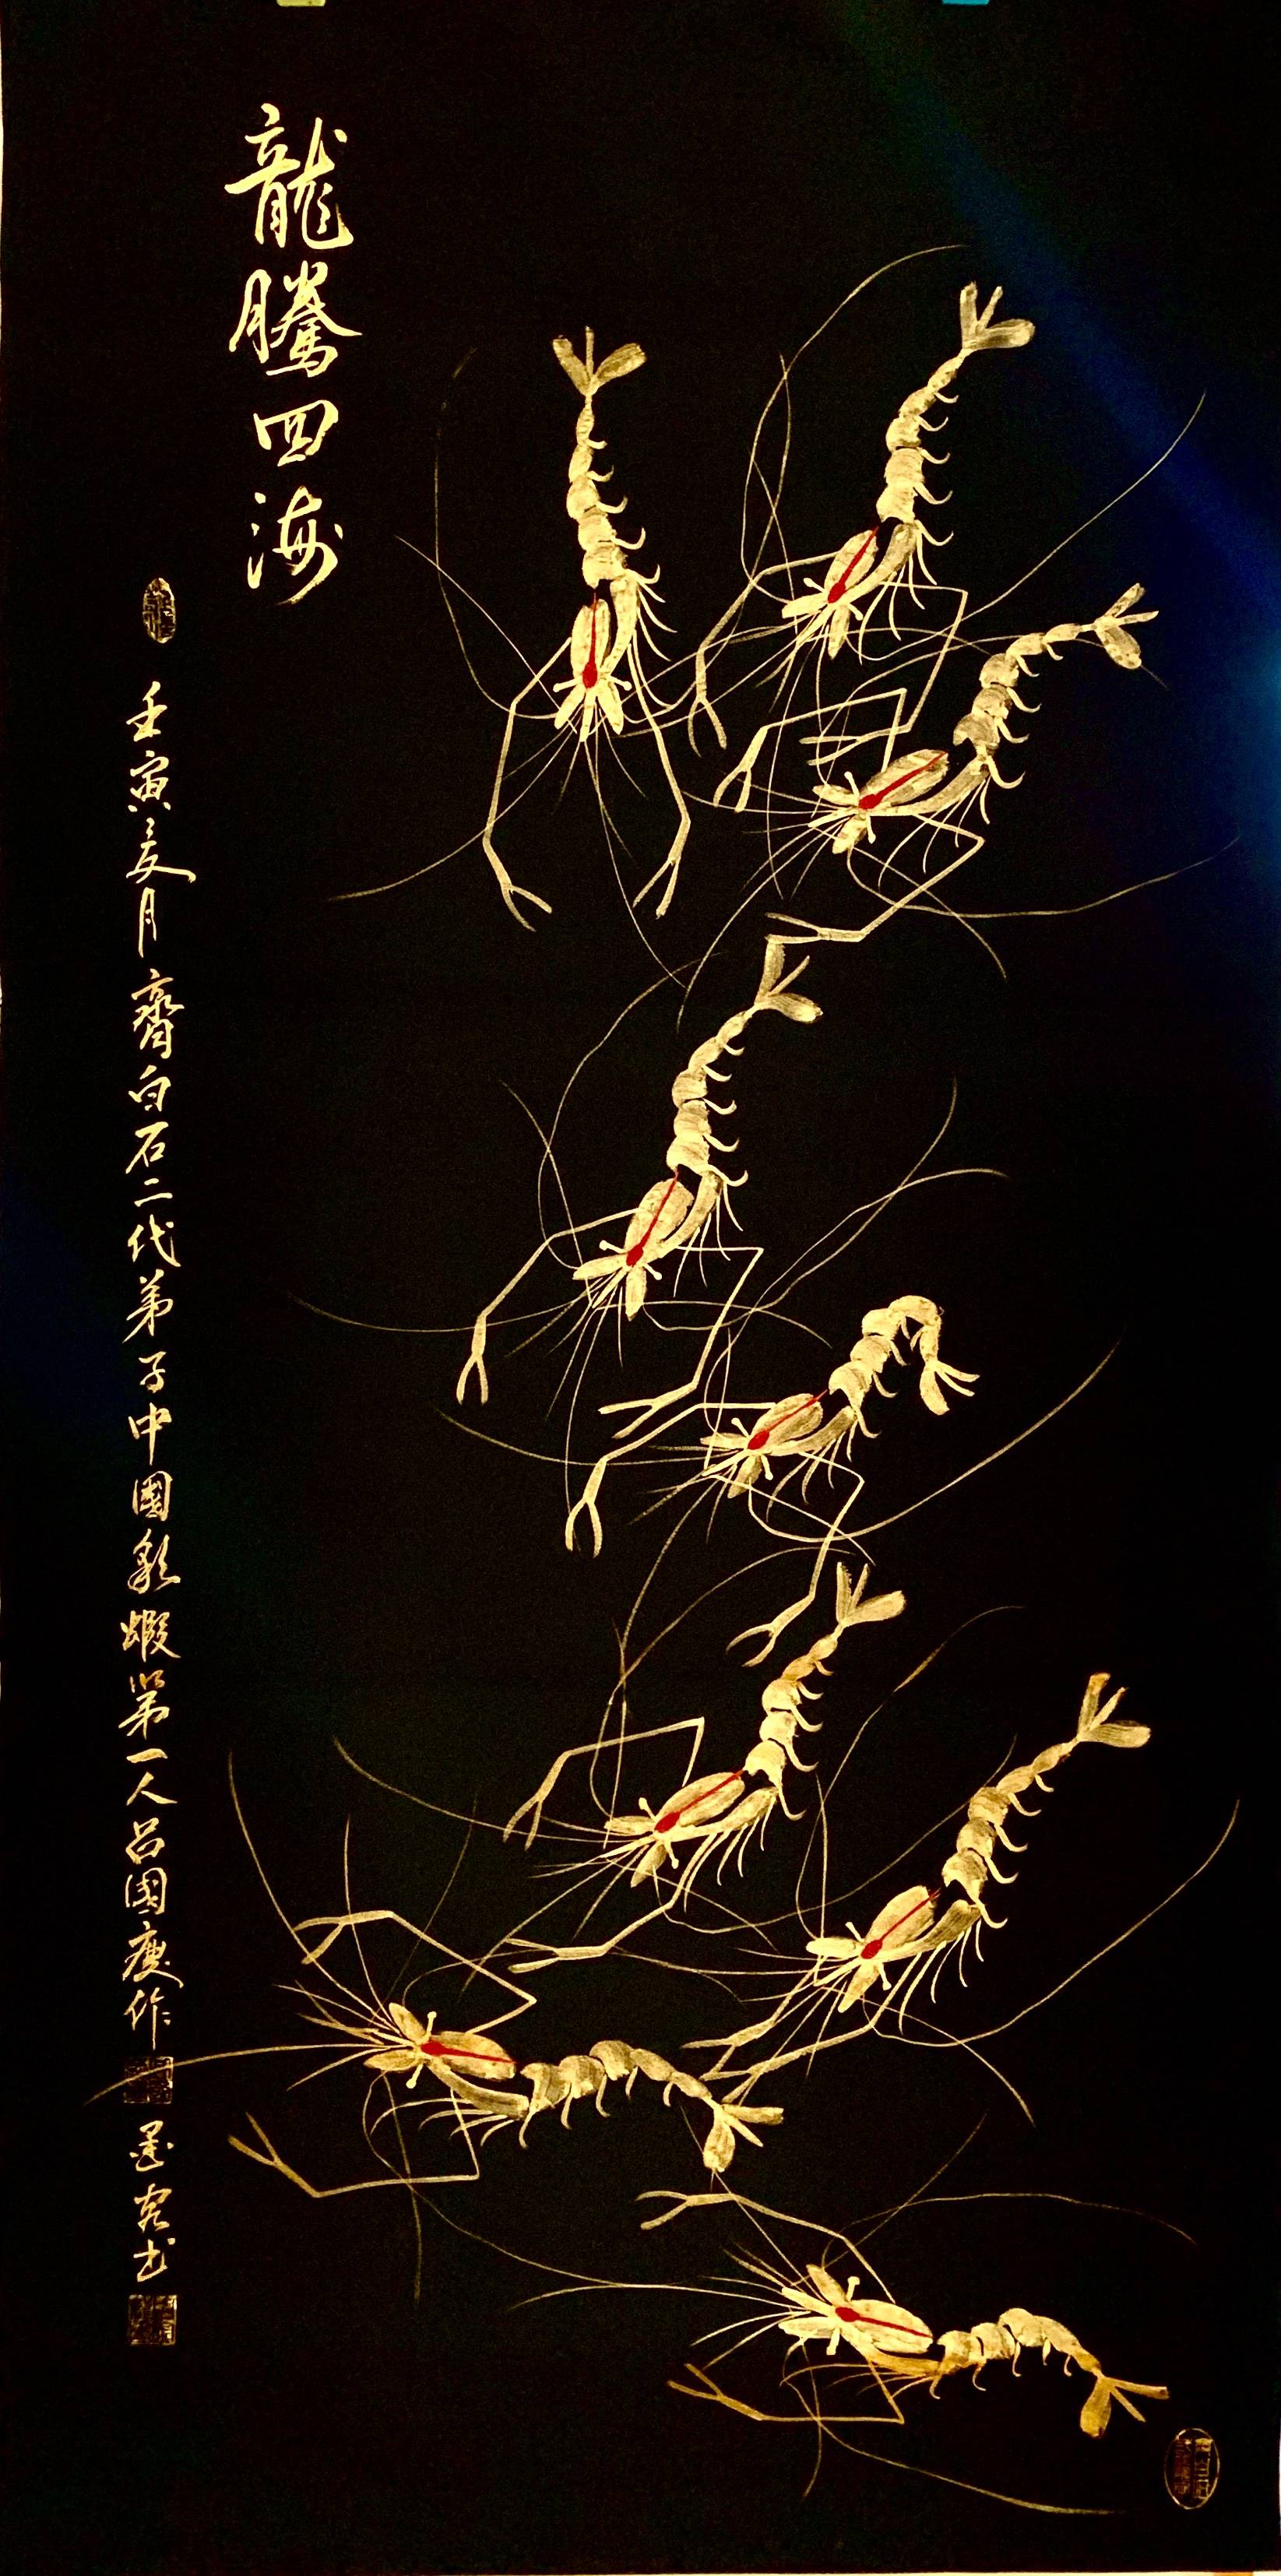 龍騰四海
壬寅亥月齊白石二代弟子中國彩蝦第一人呂國慶作
墨客书